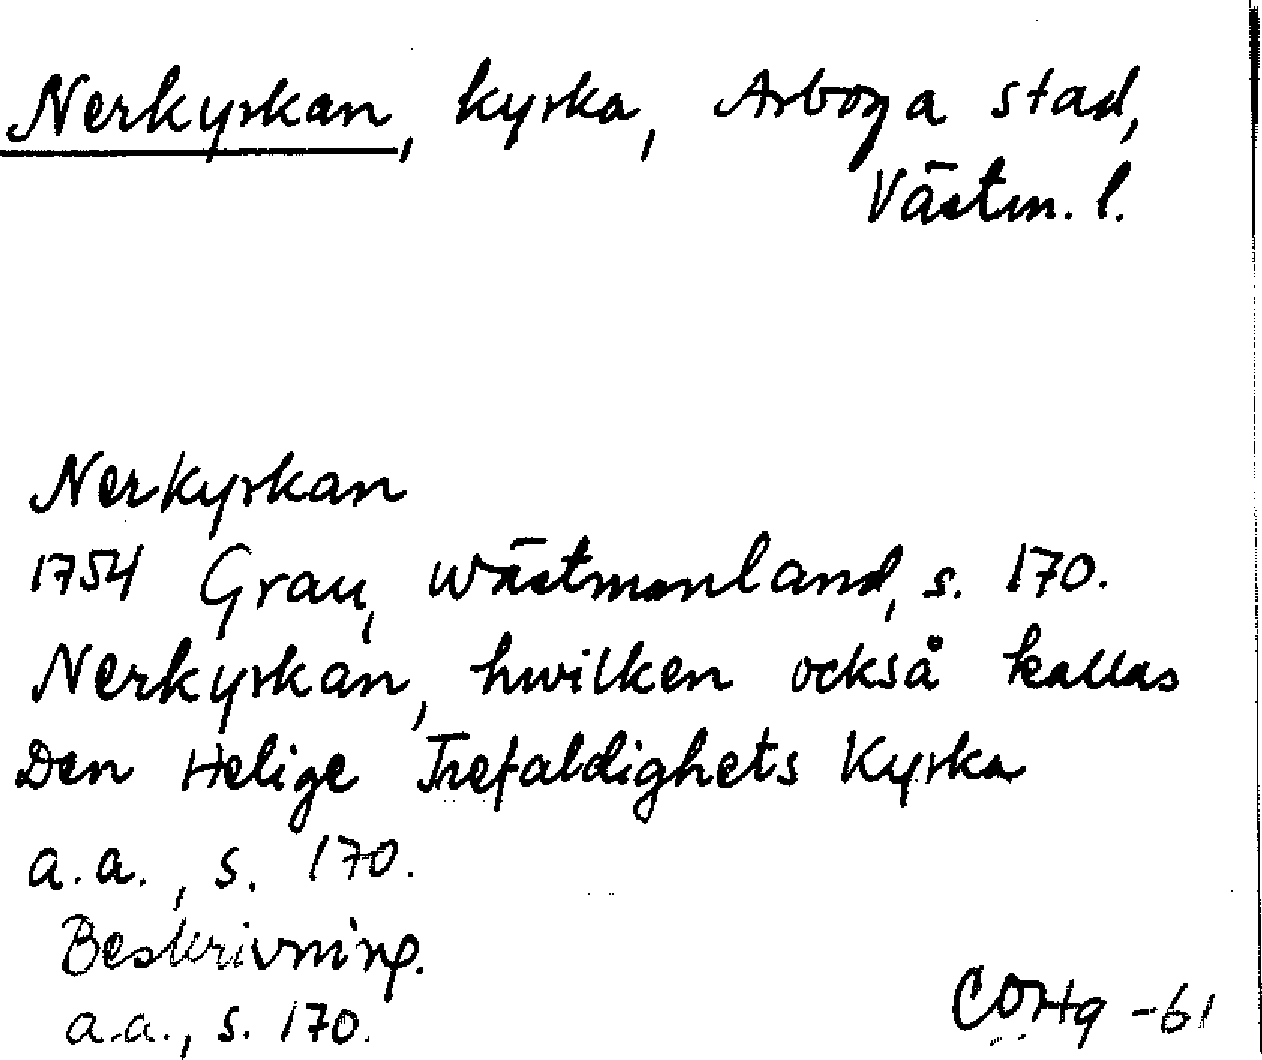 Nerkyrkan, kyrka, Arboga stad,
Västm. l.
Nerkyrkan
1754 Grau, Wästmanland, s. 170.
Nerkyrkan, hwilken också kallas
Den Helige Trefaldighets Kyrka
a.a., s. 170.
Beskrivning.
a.a., s. 170.
-61